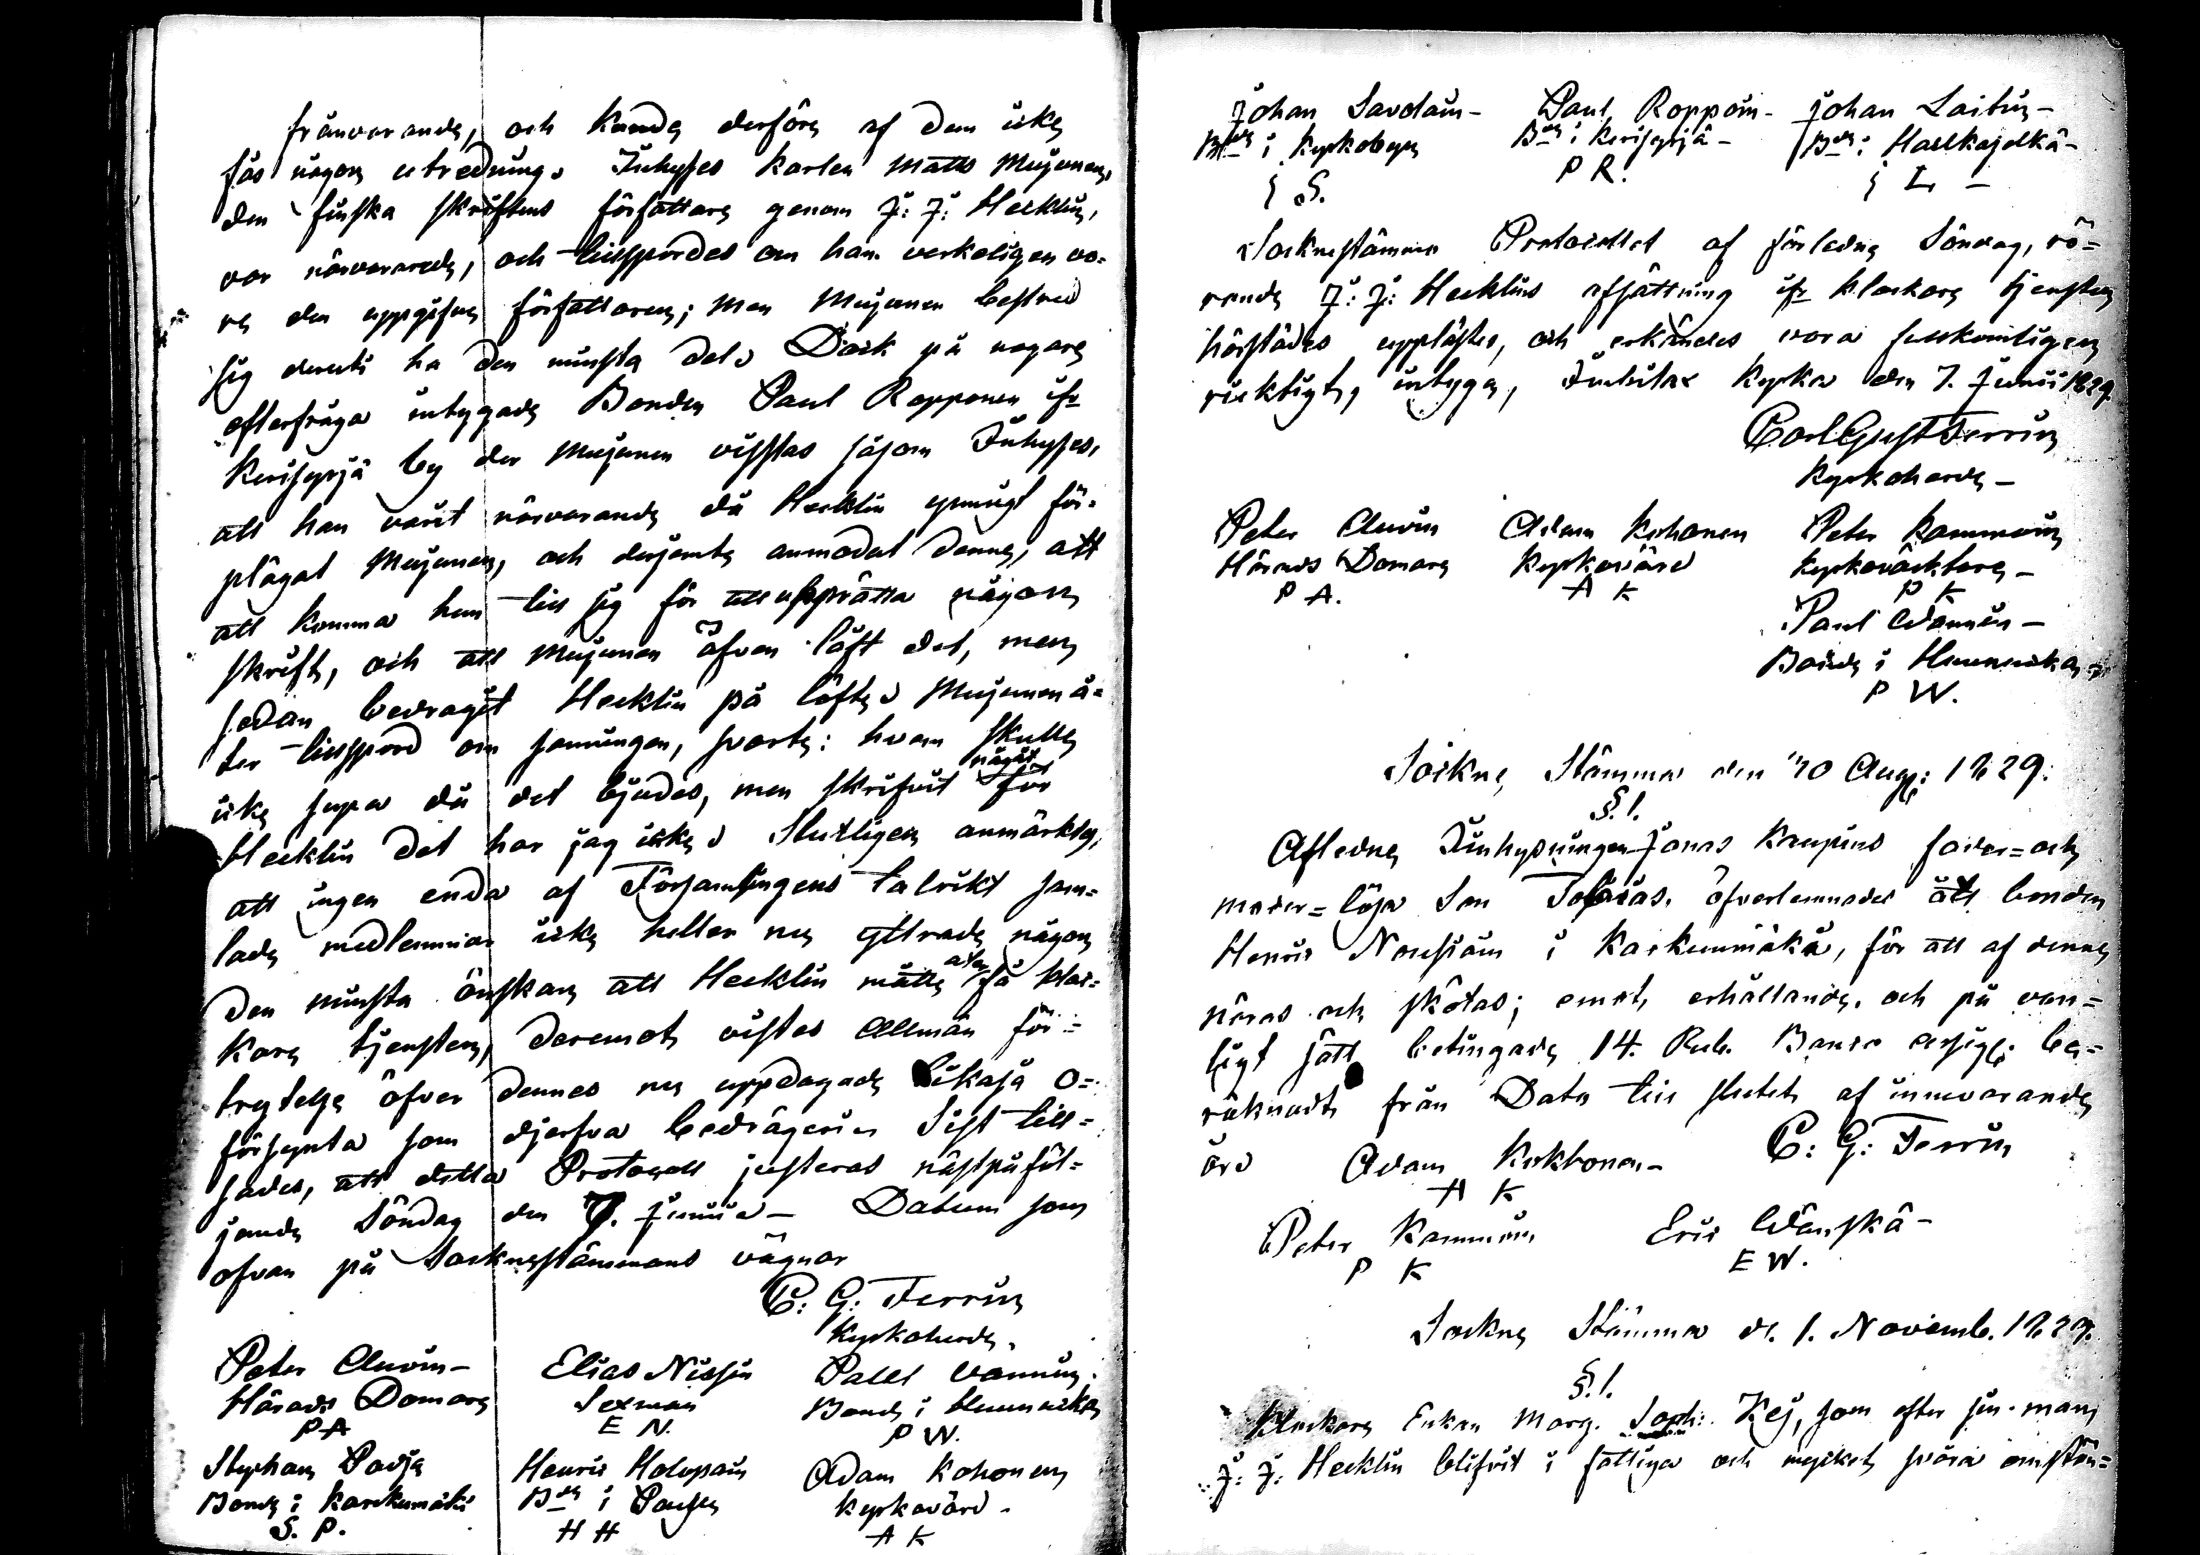 frånvarande, och kunde derföre af dem icke
fås någon utredning. Inhyses karlen Matts Mujunen,
den finska skriftens författare genom J: J: Hecklin,
var närvarande, och tillspordes om han verkeligen vo-
re den uppgifne författaren; men Mujunen bestred
sig deruti ha den minsta del. Dock på nogare
efterfråga intygade Bonden Paul Ropponen ifr
Kerisyrjä by der Mujunen vistas såsom Inhyses,
att han varit närvarande då Hecklin ymnigt för-
plägat Mujunen, och dessjemte anmodat denne, att
att komma hem till sig för att upprätta någon
skrift, och att Mujunen äfven låft det, men
sedan bedragit Hecklin på löfte. Mujunen å-
ter tillspord om sanningen, svarte: hvem skulle
icke supa då det bjudes, men skrifvit något för
Hecklin det har jag icke. Slutligen anmärktes,
att ingen enda af Församlingens talrikt sam-
lade medlemmar icke heller nu yttrade någon
den minsta önskan att Hecklin måtte åter få kloc-
kare tjensten, deremot vistes Allmän för-
trytelse öfver dennes nu uppdagade likaså o-
försynta som djerfva bedrägerier. Sist till-
sades, att detta Protocoll justeras nästpåföl-
jande Söndag den 7. Junii. – Datum som
ofvan på Socknestämmans vägnar
C: G: Ferrin
Kyrkoherde.
Peter Auvin – Elias Nissin Paul Vannin.
Härads Domare Sexman Bonde i Hummukka
P A E N. P W.
Stephan Padja Henric Holopain Adam Kohonen
Bonde i Karkumäki Bde i Kyrkovärd.
S. P. H H A K
Johan Savolain – Paul Roppoin – Johan Laitin –
Bde i Kyrkobyn Bde i Kerisyrjä – Bde i Haelkajelkä –
I S. P R. I L –
Socknestämmo Protocollet af förledne Söndag, rö-
rande J: J: Hecklins afsättning ifr klockare tjensten
härstädes upplästes, och erkändes vara fullkomligen
riktigt, intygar, Kyrka den 7. Junii 1829.
Carl Gust Ferrin
Kyrkoherde –
Peter Auvin Adam Kohonen Peter Kammoin
Härads Domare Kyrkovärd Kyrkoväcktare –
P A. A K P K
Paul Wannin –
Bonde i Hummukka
P W.
Sockne Stämma den 30 Aug: 1829.
§. 1.
Afledne Inhysningen Jonas Kaupins fader= och
moder= lösa Son Tobias, öfverlemnades åt bonden
Henric Nousiain i Karkumäkä, för att af denne
näras och skötas; emot, erhållande, och på van-
ligt sätt betingade 14. Rub. Banco assig: be-
räknadt från Dato till slutet af innevarande
år. Adam Kokkonen – C: G: Ferrin
A K
Peter Kammoin Eric Wänskä –
P K E W.
Sockne Stämma d. 1. Novemb. 1829.
§. 1.
Klockare Enkan Marg. Soph: Kej, som efter sin man
J: J: Hecklin blifvit i fattiga och mycket svåra omstän-